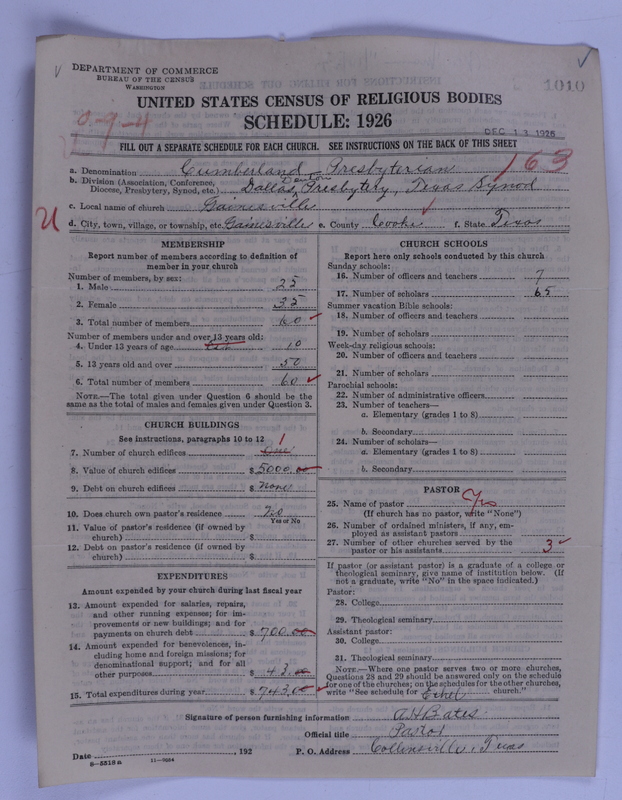 DEPARTMENT OF COMMERCE
BUREAU OF THE CENSUS
WASHINGTON
1010
UNITED STATES CENSUS OF RELIGIOUS BODIES
SCHEDULE: 1926
0-9-4
DEC 13 1926
FILL OUT A SEPARATE SCHEDULE FOR EACH CHURCH. SEE INSTRUCTIONS ON THE BACK OF THIS SHEET
163
a. Denomination Cumberland Presbyterian
b. Division (Association, Conference, Diocese, Presbytery, Synod, etc.) Dallas Denton Presbytery, Texas Synod
c. Local name of church Gainesville
U
d. City, town, village, or township, etc. Gainesville e. County Cooke f. State Texas
MEMBERSHIP
Report number of members according to definition of
member in your church
Number of members, by sex:
1. Male 25
2. Female 35
3. Total number of members 60
Number of members under and over 13 years old:
4. Under 13 years of age 10
5. 13 years old and over 50
6. Total number of members 60
NOTE.—The total given under Question 6 should be
same as the total of males and females given under Question 3.
CHURCH BUILDINGS
See instructions, paragraphs 10 to 12
7. Number of church edifices One 1
8. Value of church edifices $ 5000.00
9. Debt on church edifices $ None
10. Does church own pastor's residence No
Yes or No
11. Value of pastor's residence (if owned by
church) $
12. Debt on pastor's residence (if owned by
church) $
EXPENDITURES
Amount expended by your church during last fiscal year
13. Amount expended for salaries, repairs,
and other running expenses; for im-
provements or new buildings; and for
payments on church debt $ 700.00
14. Amount expended for benevolences, in-
cluding home and foreign missions; for
denominational support; and for all
other purposes $ 43.00
15. Total expenditures during year $ 743.00
CHURCH SCHOOLS
Report here only schools conducted by this church
Sunday schools:
16. Number of officers and teachers 7
17. Number of scholars 65
Summer vacation Bible schools:
18. Number of officers and teachers
19. Number of scholars
Week-day religious schools:
20. Number of officers and teachers
21. Number of scholars
Parochial schools:
22. Number of administrative officers
23. Number of teachers—
a. Elementary (grades 1 to 8)
b. Secondary
24. Number of scholars—
a. Elementary (grades 1 to 8)
b. Secondary
PASTOR
25. Name of pastor Yes
(If church has no pastor, write "None")
26. Number of ordained ministers, if any, em-
ployed as assistant pastors
27. Number of other churches served by the
pastor or his assistants 3
If pastor (or assistant pastor) is a graduate of a college or
theological seminary, give name of institution below. (If
not a graduate, write "No" in the space indicated.)
Pastor:
28. College
29. Theological seminary
Assistant pastor:
30. College
31. Theological seminary
NOTE.—Where one pastor serves two or more churches,
Questions 28 and 29 should be answered only on the schedule
for one of the churches; on the schedules for the other churches,
write "See schedule for Ethel church."
Signature of person furnishing information A H Bates
Official title Pastor
Date , 192 P. O. Address Collinsville, Texas
8-5518 a 11-9034